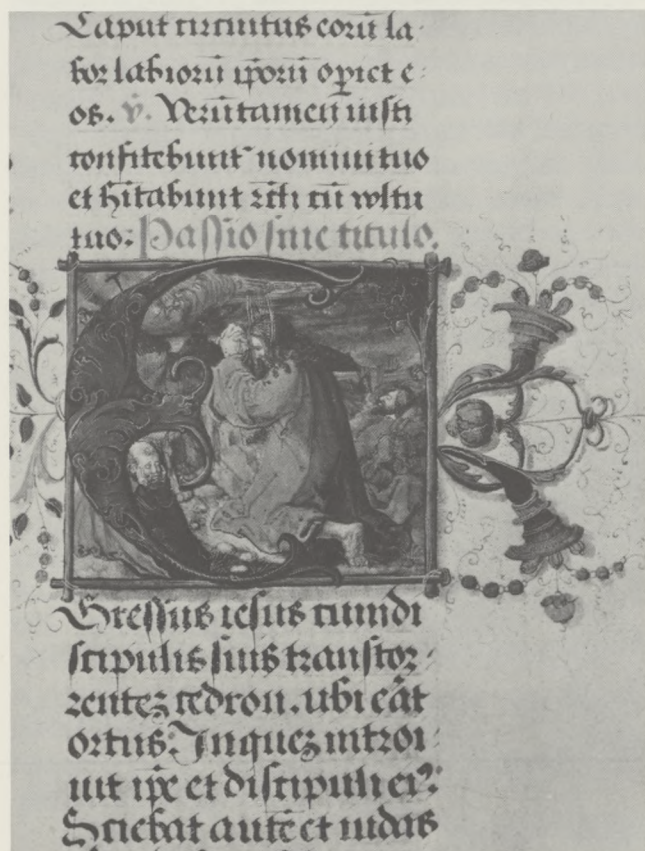 Caput circuitus eorū la
bor labiorū ip̄orū op̲iet e
os. v̄. Verūtamen iusti
confitebunt nomini tuo
et hītabunt rc̄ti cū vultu
tuo: Passio sine titulo.
E
Gressus iesus cum di
scipulis suis trans tor
rentez cedron. ubi eāt
ortus: Inquez introi
uit ip̄e et discipuli ei⁹:
Sciebat autē et iudas